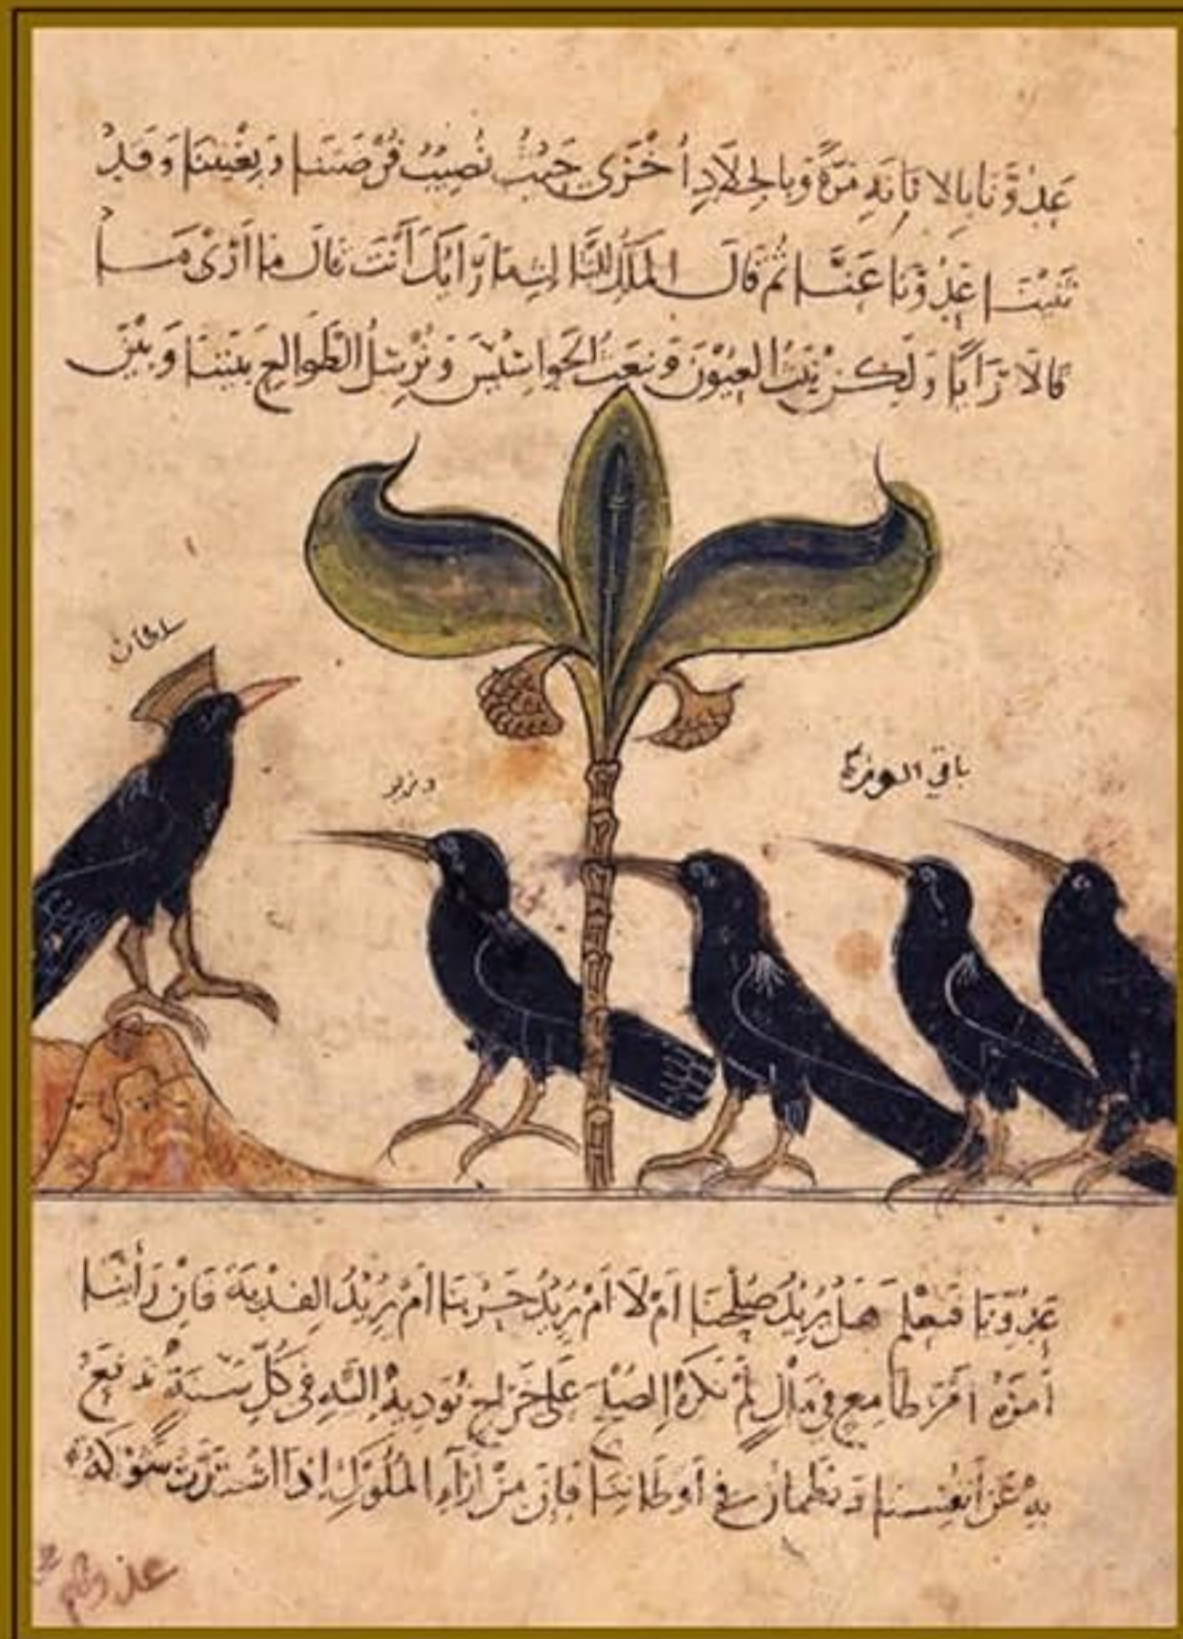 عدونا بالاناته مرة وبالجلاد أخرى حيث نصيب فرصتنا وبغيتنا وقد
ثنينا عدونا عنا ثم قال الملك للثالث ما رأيك أنت قال ما أرى ما
قالا رأيا ولكن نبث العيون ونبعث الجواسيس ونرسل الطوالع بيننا وبين
سلطان
وزير
باقي الوزرة
عدونا فنعلم هل يريد صلحنا أم لا أم يريد حربنا أم يريد الفدية فإن رأينا
أمره أمر طامع في مال لم نكره الصلح على خراج نوديه إليه في كل سنة ندفع
به عن أنفسنا ونطمان في أوطاننا فإن من آراء الملوك إذا اشتدت شوكة